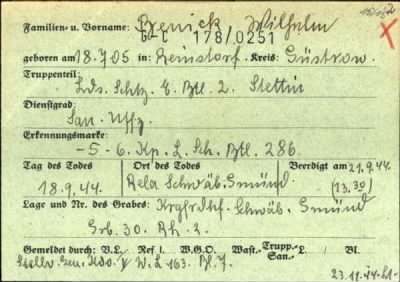 Familien- u. Vorname: Brenick Wilhelm
G-C 178/0251
geboren am 18.7.05 in: Reinstorf. Kreis: Güstrow.
Truppenteil:
Lds. Schtz. E. Btl. 2. Stettin
Dienstgrad:
San. Uffz.
Erkennungsmarke:
-5- 6. Kp. L. Sch. Btl. 286.
Tag des Todes Ort des Todes Beerdigt am 21.9.44.
18.9.44. Schwäb. Gmünd (13.30)
Lage und Nr. des Grabes: Krgfrdhf. Schwäb. Gmünd
Grb. 30. Rh. 2.
Gemeldet durch: V.L. Res. L. W.G.O. Wast.- Trupp.- L. Bl.
San.-
Stellv. Gen. Kdo. V W.L. 163. Bl. 7.
23.11.44